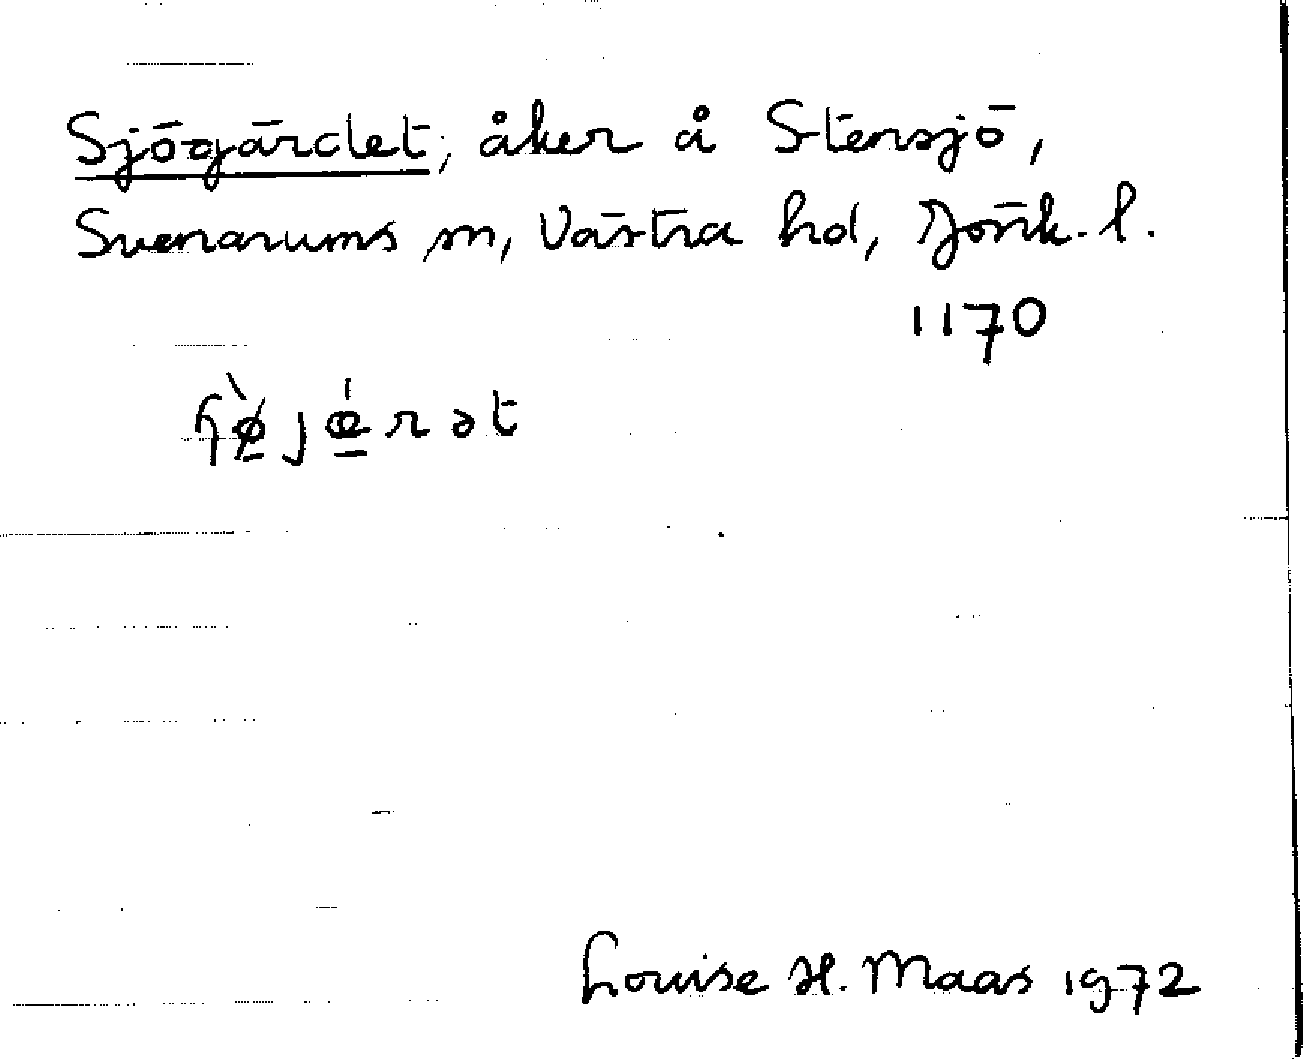 Sjögärdet, åker å Stensjö,
Svenarums sn, Västra hd, Jönk. l.
1170
ɧø̀jǽrət
Louise H. Maas 1972